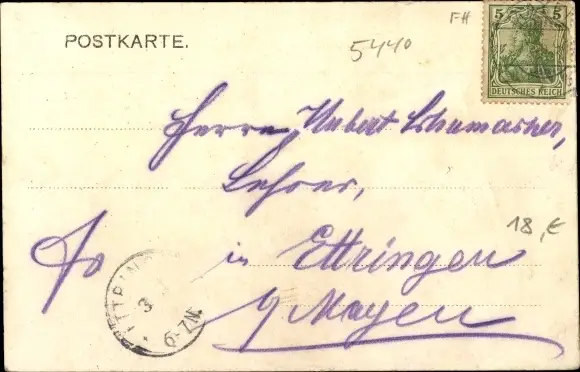 POSTKARTE.
FH
5440
5 5
DEUTSCHES REICH
Herrn Hubert Schumacher,
Lehrer,
in Ettringen
b/ Mayen
18,€
ETTRIN
3
6-7N.